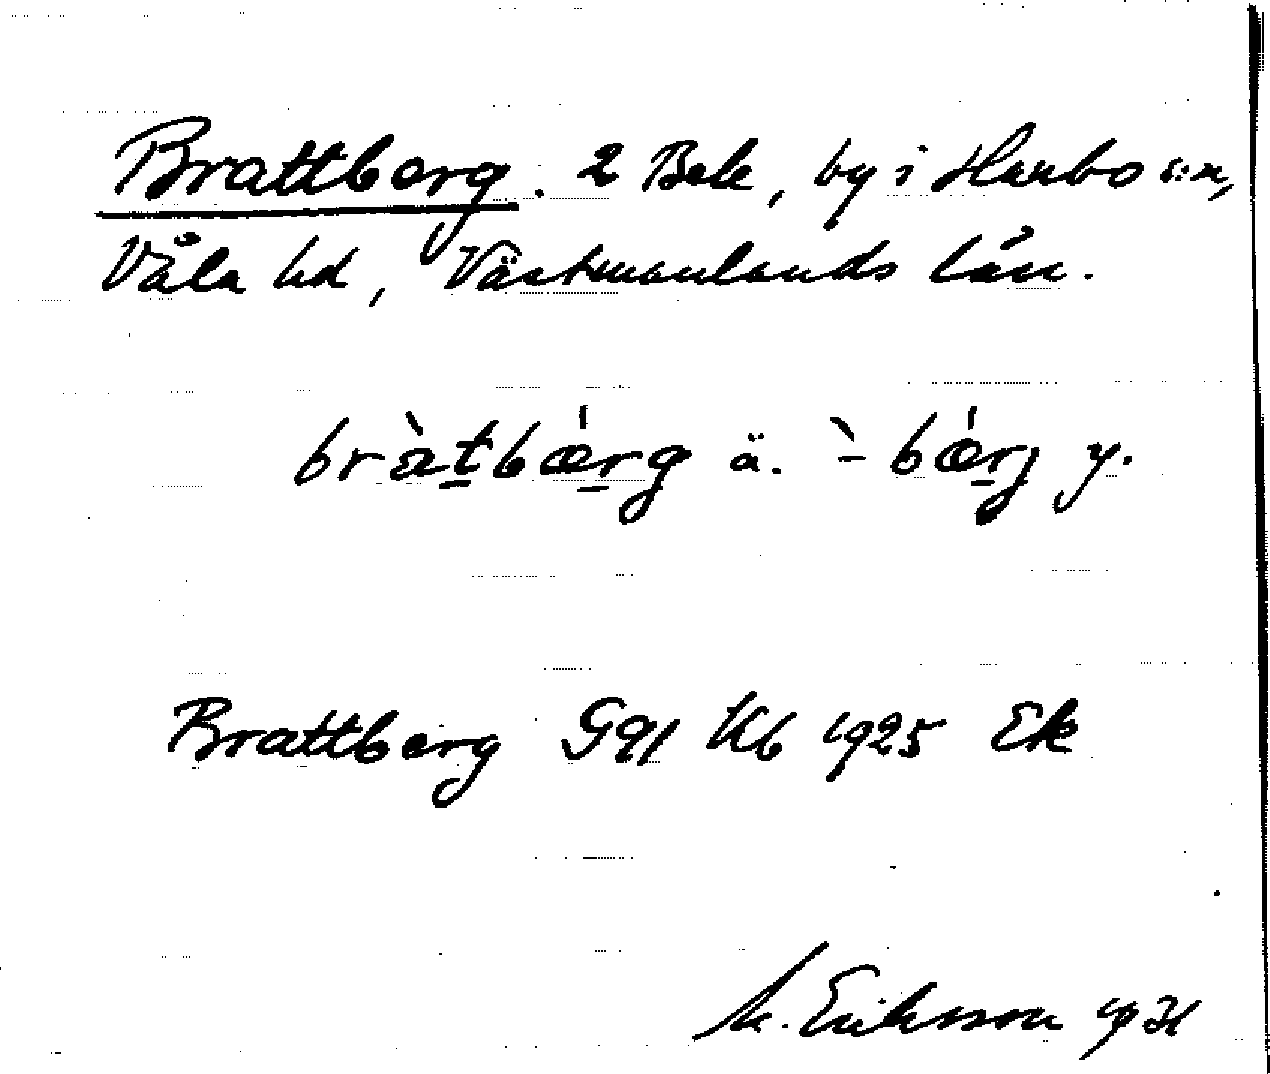 Brattberg. 2 Bek, by i Harbo s:n,
Våla hd, Västmanlands län.
bràtbǽrg ä. `- bǽrj y.
Brattberg G91 Kb 1925 Ek
M. Eriksson 1931